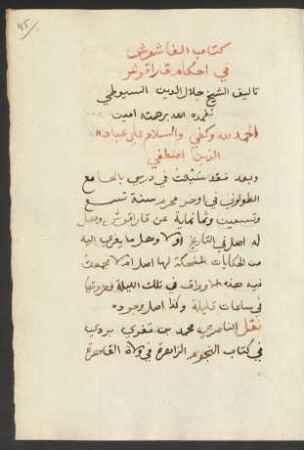 45
كتاب الفاشوش
في احكام قراقوش
تاليف الشيخ جلال الدين السيوطي
تغمده الله برحمته امين
الحمد لله وكفي والسلام علي عباده
الذين اصطفي
وبعد فقد سئلت في درسي بالجامع
الطولوني في اوخر محرم سنة تسع
وتسعين وثمانماية عن قراقوش وهل
له اصل في التاريخ اولا وهل ما يعزى اليه
من الحكايات المضحكة لها اصل ام لا فجمعت
فيه هذه الاوراق في تلك الليلة
في ساعات قليلة وكذا اصل وجوده
نقل الناصري محمد بن تغري بردي
في كتاب النجوم الزاهرة في ولاة القاهرة